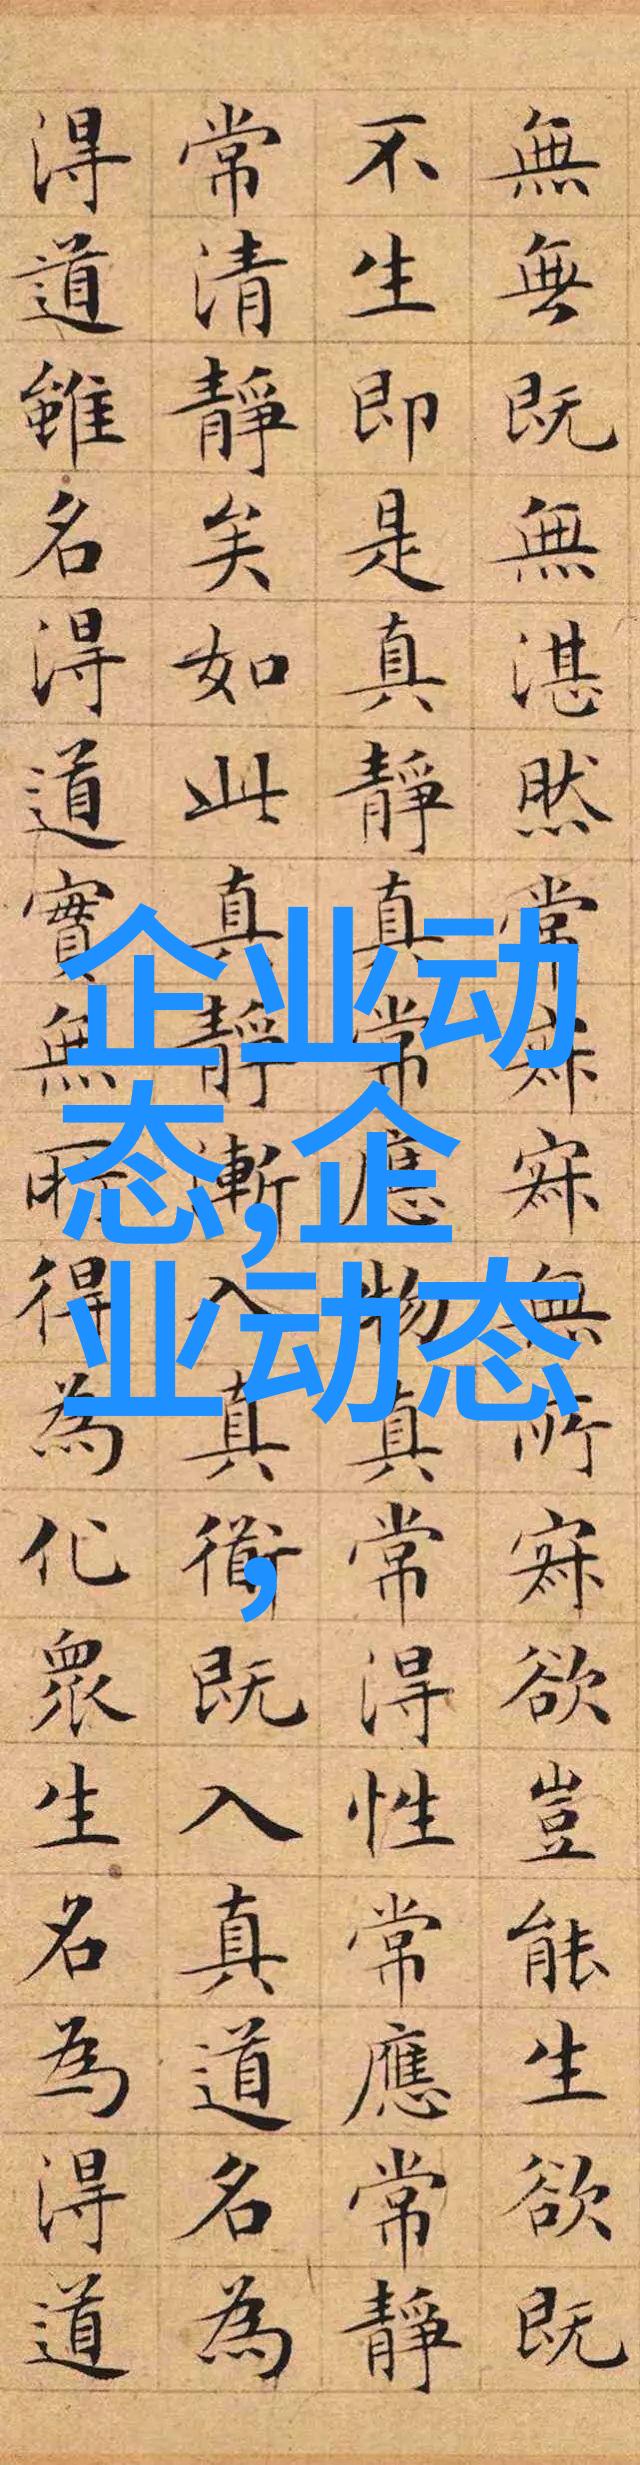 無無既無湛然常寂寂無所寂欲豈能生欲既
不生即是真靜真常應物真常得性常應常靜
常清靜矣如此真靜漸入真衜既入真道名為
得道雖名得道實無所得為化眾生名為得道
企业动
态,企
业动态
,